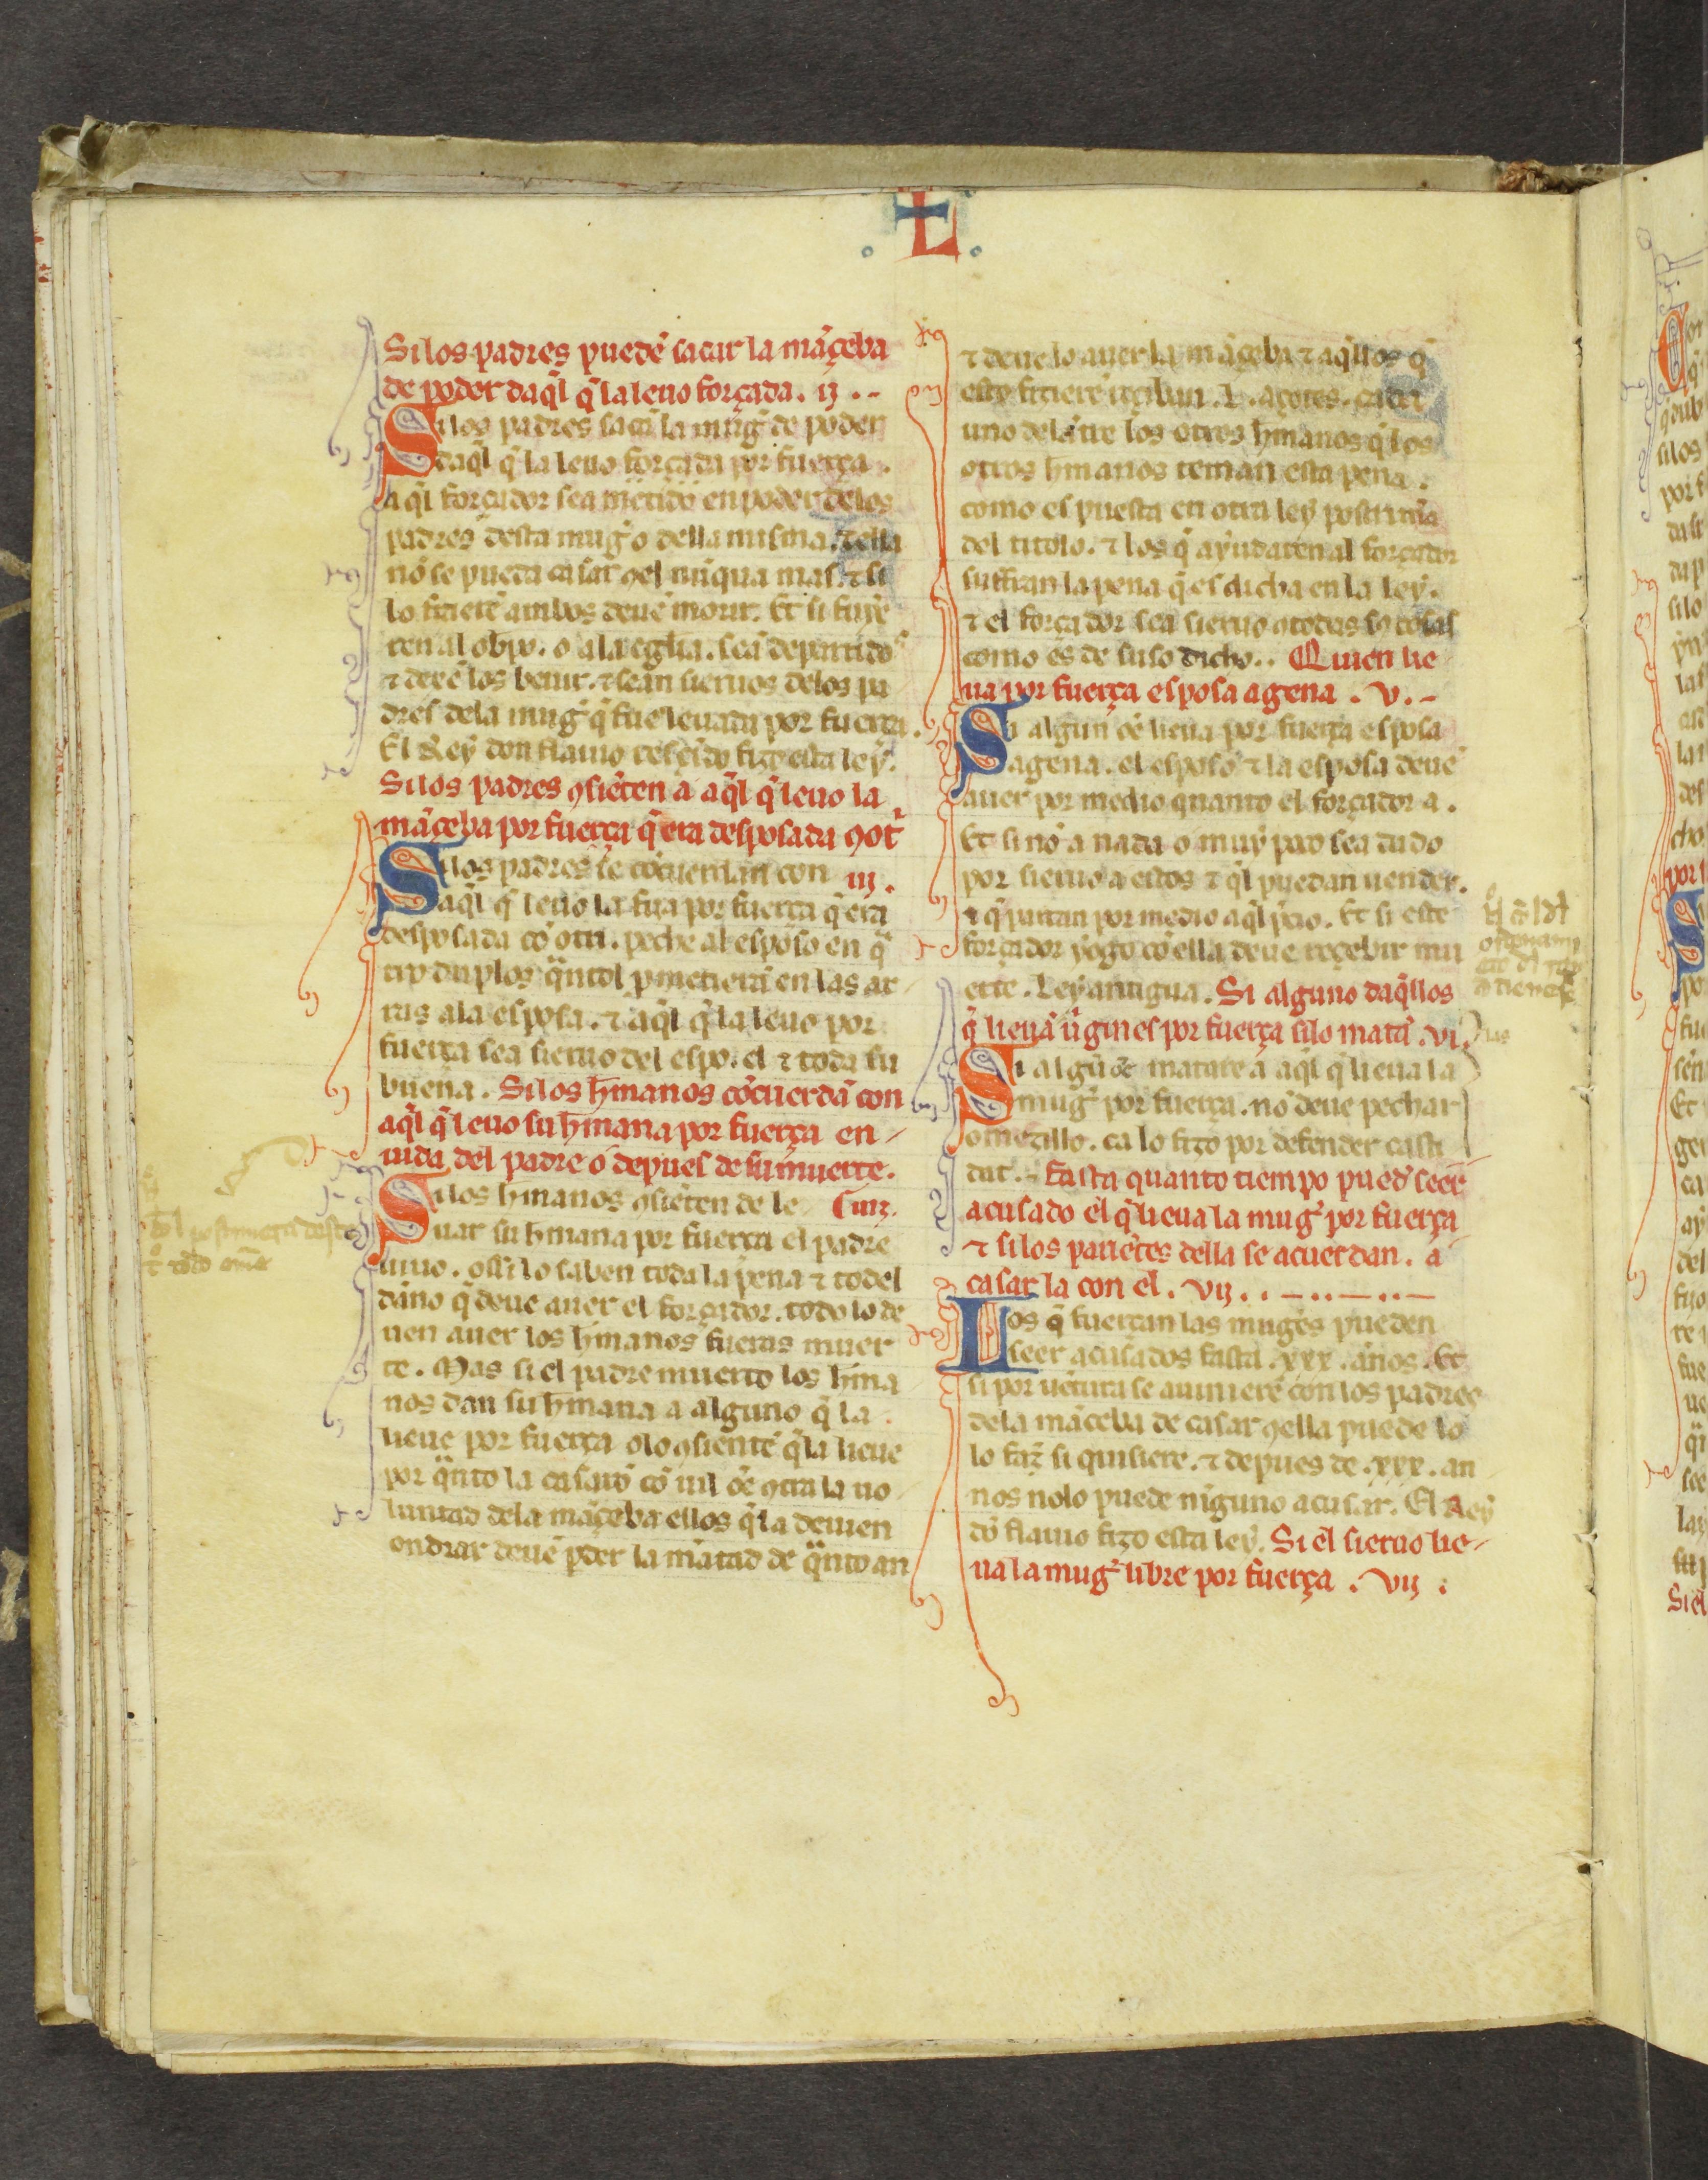 L
Si los padres puedē sacar la māçeba
de poder daq̄l q̄ la leuo forçada. ij . .-
Si los padres sacā la mug̃ de poder
daq̄l q̄ la leuo forçada por fuerça.
aq̄l forçador sea metido en poder delos
padres desta mug̃ o della misma. ⁊ ella
nō se pueda casar ꝯel nūqua mas. ⁊ si
lo fiziere ambos deuē morir. Et si fuye
ren al obpo. o a la eglia. sea departidos
⁊ deuē los beuir. ⁊ sean sieruos delos pa
dres dela mug̃ q̄ fue leuada por fuerça.
El Rey don flauio fizo esta ley.
Si los padres ꝯsiēten a aq̄l q̄ leuo la
māçeba por fuerça q̄ era desposada ꝯot̃
Si los padres se cōuienian con iij.
aq̄l q̄ leuo la fija por fuerça q̄ era
desposada cō otri. peche al esposo en q̄
tro duplos q̄ntol ꝓmetierā en las ar
ras ala esposa. ⁊ aq̄l q̄ la leuo por
fuerça sea sieruo del espo. el ⁊ toda su
buena. Si los hmanos cōcuerdā con
aq̄l q̄ leuo su hmana por fuerça en
uida del padre o depues de su muerte.
Si los hmanos ꝯsiēten de le iiij.
uar su hmana por fuerça el padre
uiuo. o si lo saben toda la pena ⁊ todel
dāno q̄ deue auer el forçador. todo lo de
uen auer los hmanos fueras muer
te. Mas si el padre muerto los hma
nos dan su hmana a alguno q̄ la
lieue por fuerça o lo ꝯsienten q̄ la lieue
por q̄nto la casarō cō uil oē ꝯtra la uo
luntad dela māçeba ellos q̄ la deuien
ondrar deuē ꝑder la mātad de q̄nto an
⁊ deue lo auer la māçeba ⁊ aq̄llos q̄
esto fiziere reçiban .L. açotes. cada
uno delātre los otros hmanos q̄ los
otros hmanos teman esta pena.
como es puesta en otra ley postrima
del titolo. ⁊ los q̄ ayudaren al forçador
suffran la pena q̄ es dicha en la ley.
⁊ el forçador sea sieruo ꝯ todas sus cosas
como es de suso dicho.. Quien lie
ua por fuerça esposa agena . v . -
Si algun oē lieua por fuerça esposa
agena. el esposo ⁊ la esposa deuē
auer por medio quanto el forçador a.
Et si nō a nada o muy poco sea dado
por sieruo a estos ⁊ q̄l puedan uender.
⁊ q̄ partan por medio aq̄l p̄cio. Et si este
forçador yogo cō ella deue reçebir mu
erte. Ley antigua. Si alguno daq̄llos
q̄ lieuā ũgines por fuerça silo matā .vi.
Si algū oē matare a aq̄l q̄ lieua la
mug̃ por fuerça. no deue pechar
omezillo. ca lo fizo por defender casti
dat.- Fasta quanto tiempo pued̄ seer
acusado el q̄ lieua la mug̃ por fuerça
⁊ si los pariētes della se acuerdan. a
casar la con el. vij . . - .. - .. -
Los q̄ fuerçan las mug̃es pueden
seer acusados fasta .xxx. años. Et
si por uētura se auiniere con los padres
dela māçeba de casar ꝯella puede lo
lo faz̃ si quisiere. ⁊ depues de .xxx. an
nos nolo puede nīguno acusar. El Rey
dō flauio fizo esta ley. Si el sieruo lie
ua la mug̃ libre por fuerça . vij .